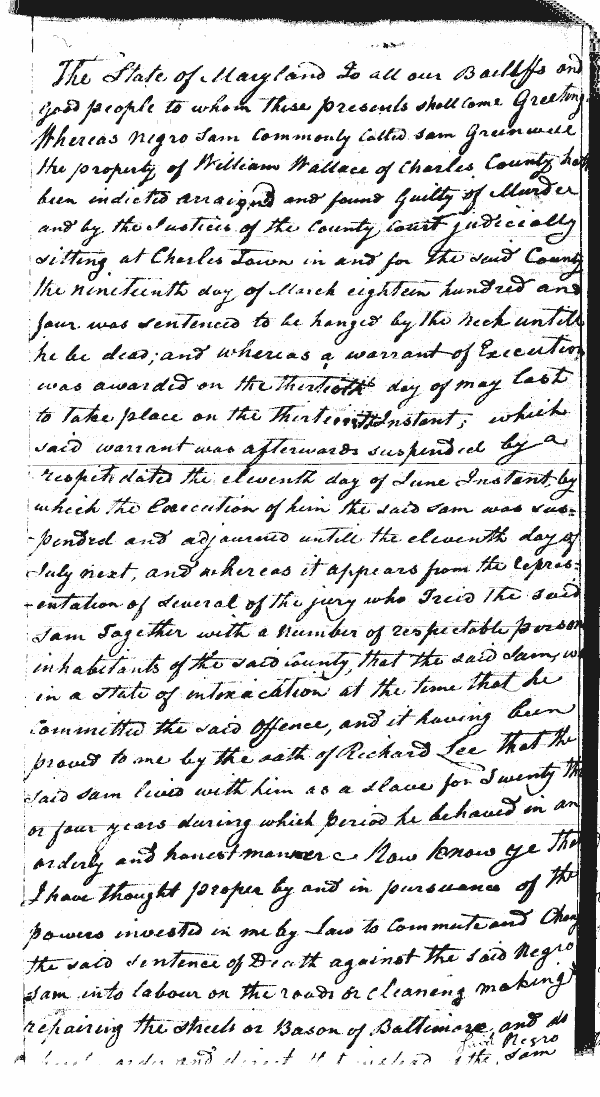 The State of Maryland To all our Bailiffs and
good people to whom these presents shall come Greeting
Whereas Negro Sam Commonly Called Sam Greenwell
the property of William Wallace of Charles County hath
been indicted arraignd and found Guilty of Murder
and by the Justices of the County Court judicially
sitting at Charles Town in and for the said County
the nineteenth day of March eighteen hundred and
four was sentenced to be hanged by the Neck untill
he be dead; and whereas a warrant of Execution
was awarded on the thirtieth day of may last
to take place on the thirteenth Instant; which
said warrant was afterwards suspended by a
respit dated the eleventh day of June Instant by
which the Execution of him the said Sam was sus=
-pended and adjourned untill the eleventh day of
July next, and whereas it appears from the repres=
-entation of several of the jury who Tried the said
Sam Together with a Number of respectable person
inhabitants of the said County, that the said Sam,
in a State of intoxacation at the time that he
Committed the said Offence, and it having been
proved to me by the oath of Richard Lee that the
said Sam lived with him as a slave for Twenty th
or four years during which Period he behaved in an
orderly and honest manner Now know ye tha
I have thought proper by and in pursuance of the
powers invested in me by Law to Commute and Chang
the said sentence of Death against the said Negro
Sam into labour on the roads or cleaning making
repairing the streets or Bason of Baltimore and do
said Negro
order and direct that instead of the Sam